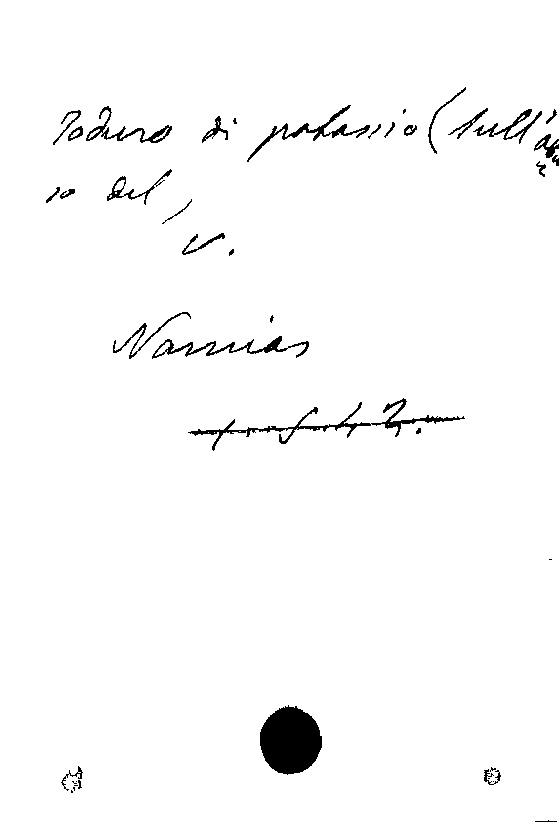 Ioduro di potassio (sull'
io del,
V.
Namias